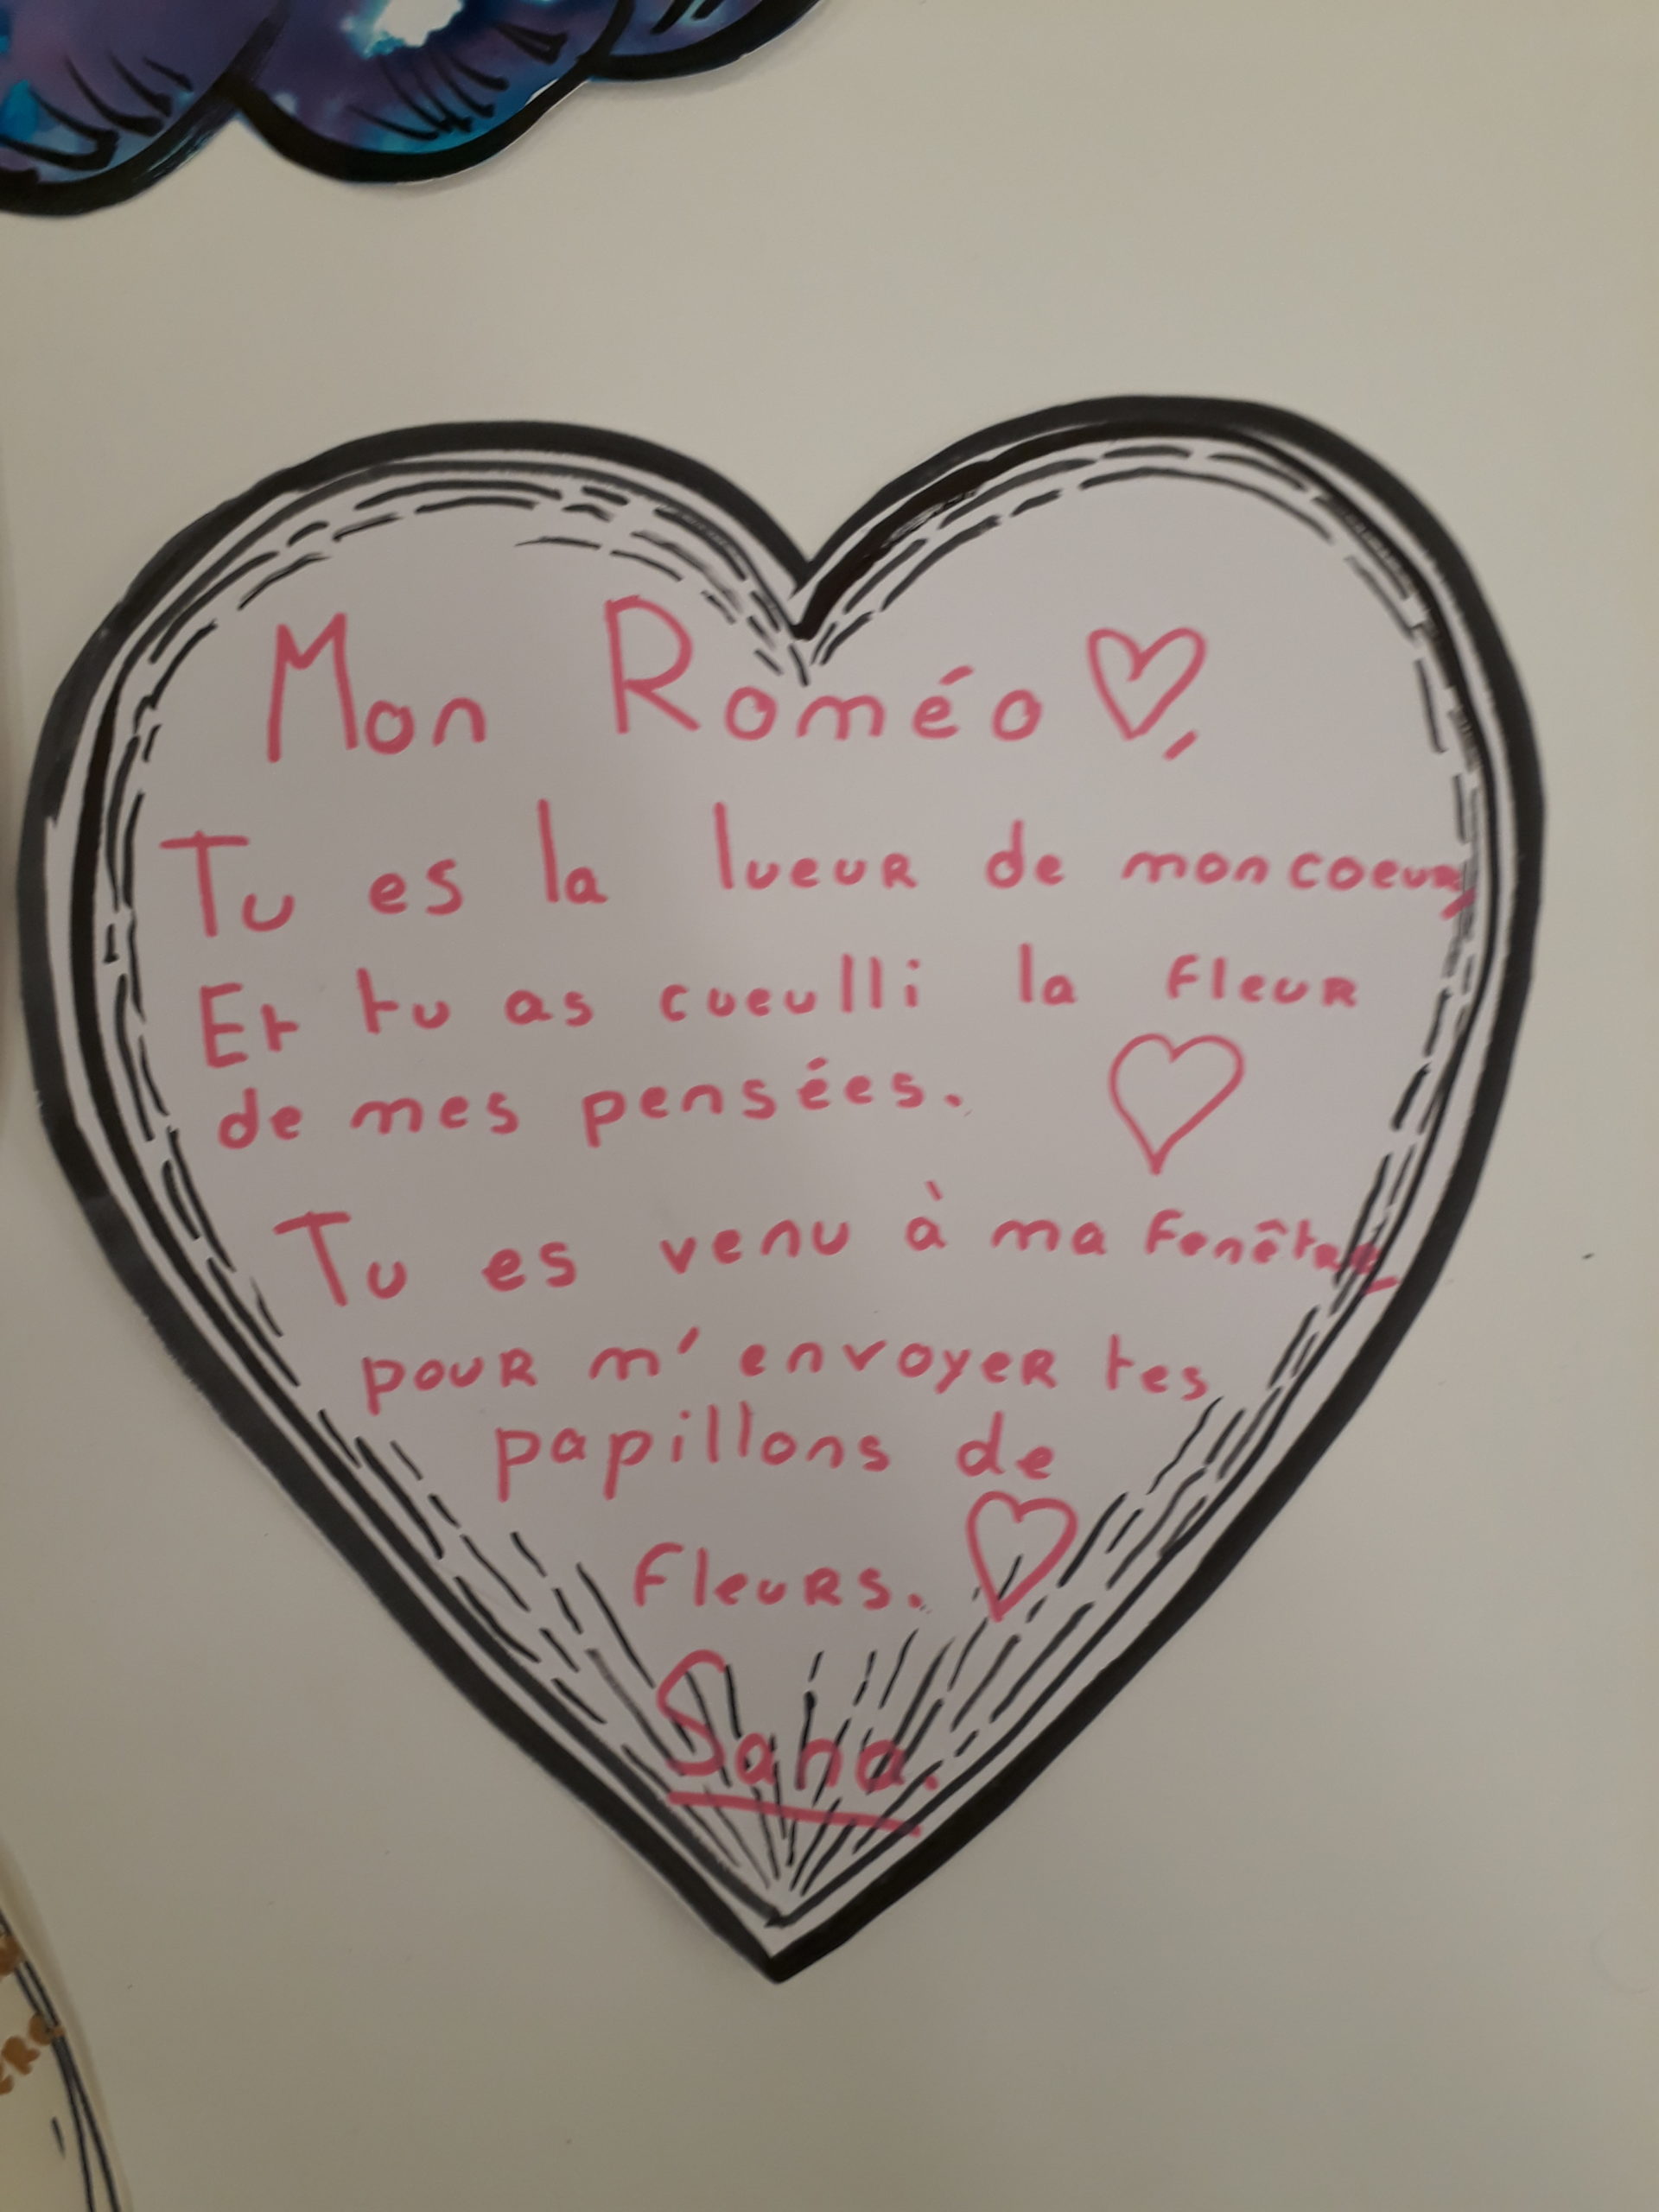 Mon Roméo ♡,
Tu es la lueur de mon coeur,
Et tu as cueulli la fleur
de mes pensées. ♡
Tu es venu à ma fenêtre,
pour m'envoyer tes
papillons de
fleurs. ♡
Sana.